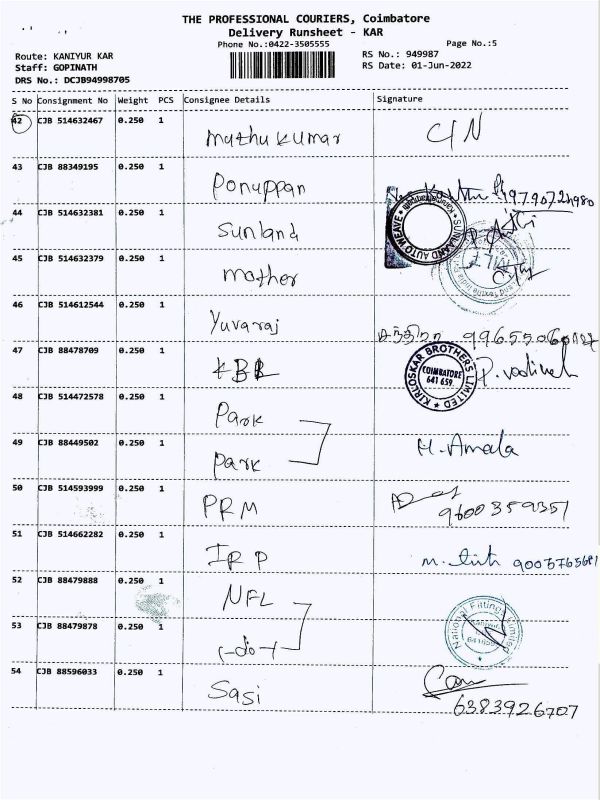 THE PROFESSIONAL COURIERS, Coimbatore
Delivery Runsheet - KAR
Phone No.:0422-3505555
Page No.:5
Route: KANIYUR KAR
Staff: GOPINATH
DRS No.: DCJB94998705
RS No.: 949987
RS Date: 01-Jun-2022
S No Consignment No Weight PCS Consignee Details Signature
42 CJB 514632467 0.250 1 Muthukumar
43 CJB 88349195 0.250 1 Ponuppan
44 CJB 514632381 0.250 1 Sunland
SUNLAND AUTO WEAVE
45 CJB 514632379 0.250 1 mother
46 CJB 514612544 0.250 1 Yuvaraj
47 CJB 88478709 0.250 1 KBL
KIRLOSKAR BROTHERS LIMITED
COIMBATORE
641 659
48 CJB 514472578 0.250 1 Park
49 CJB 88449502 0.250 1 Park H. Amala
50 CJB 514593999 0.250 1 PRM
9600359351
51 CJB 514662282 0.250 1 IRP
52 CJB 88479888 0.250 1 NFL
National Fittings Limited
53 CJB 88479878 0.250 1 (-do-)
54 CJB 88596033 0.250 1 Sasi
6383926707